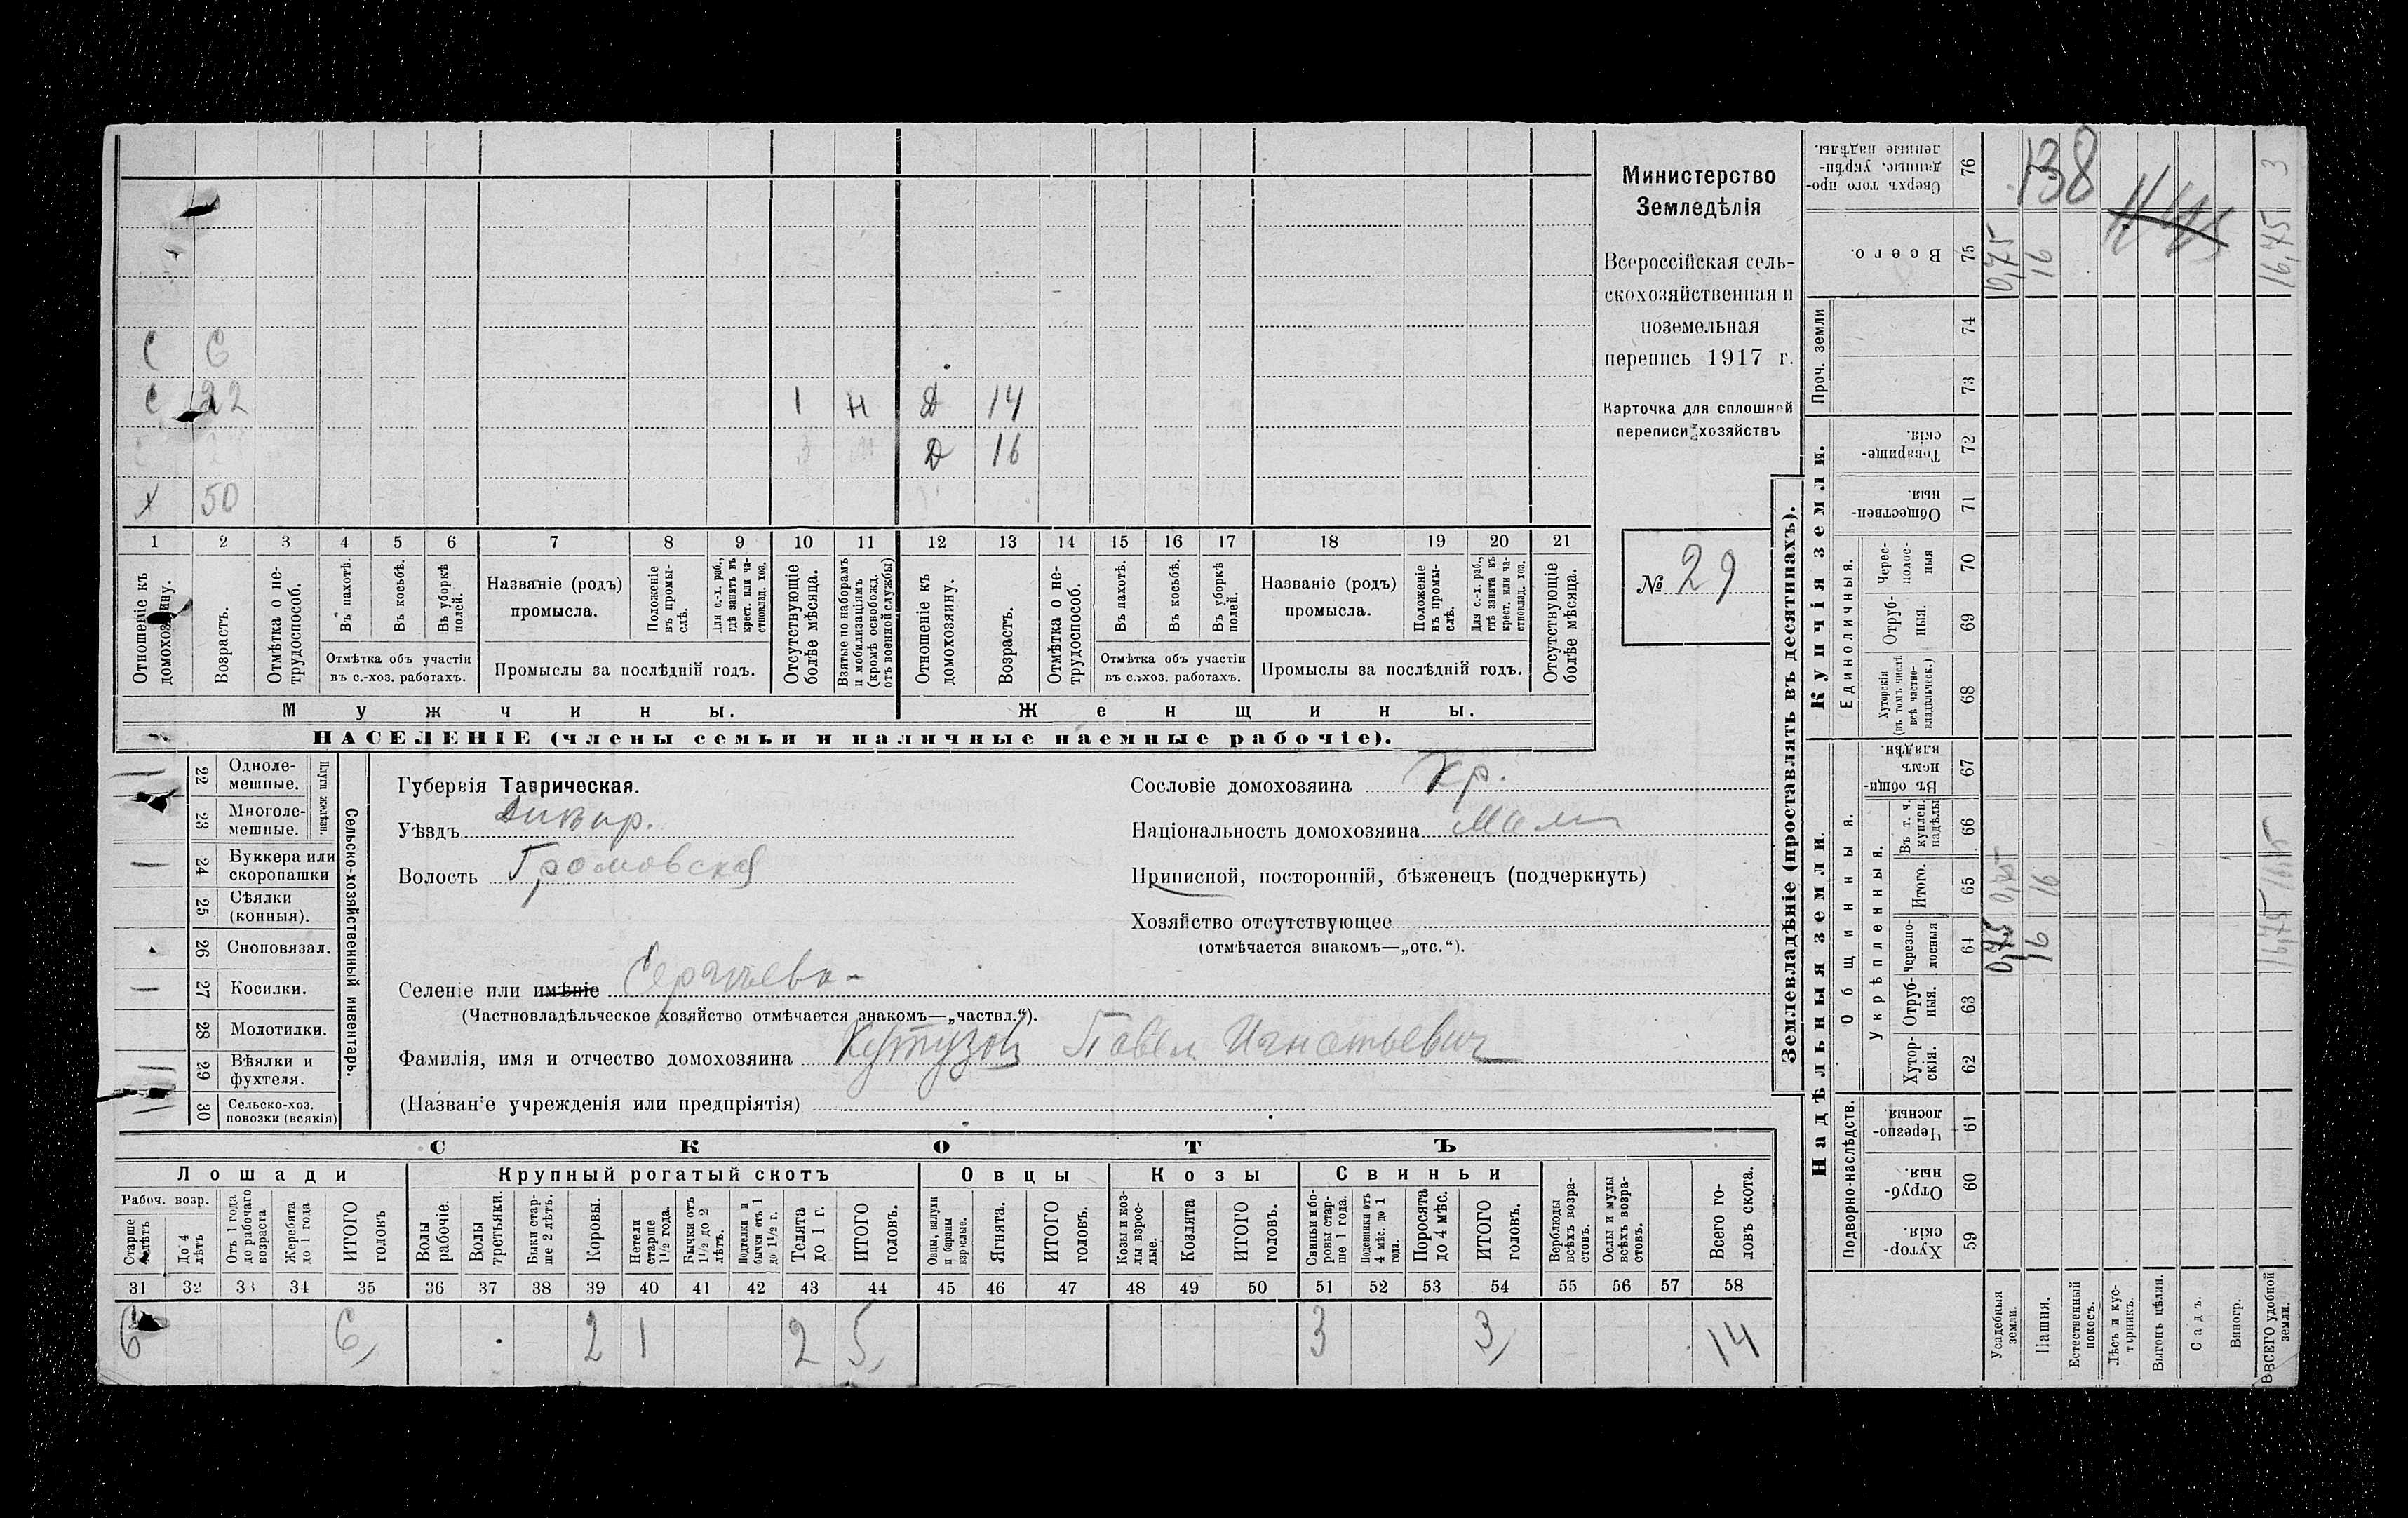 С 6
С 22 1 н Д 14
Д 16
Х 50
1 2 3 4 5 6 7 8 9 10 11 12 13 14 15 16 17 18 19 20 21
Отношеніе къ домохозяину.
Возрастъ.
Отмѣтка о не-
трудоспособ.
Въ пахотѣ.
Въ косьбѣ.
Въ уборкѣ
полей.
Отмѣтка объ участіи
въ с.-хоз. работахъ.
Названіе (родъ)
промысла.
Положеніе
въ промы-
слѣ.
Для с.-х. раб.,
гдѣ занятъ въ
крест. или ча-
стновлад. хоз.
Промыслы за послѣдній годъ.
Отсутствующіе
болѣе мѣсяца.
Взятые по наборамъ
и мобилизаціямъ
(кромѣ освобожд.
отъ военной службы)
Отношеніе къ
домохозяину.
Возрастъ.
Отмѣтка о не-
трудоспособ.
Въ пахотѣ.
Въ косьбѣ.
Въ уборкѣ
полей.
Отмѣтка объ участіи
въ с.-хоз. работахъ.
Названіе (родъ)
промысла.
Положеніе
въ промы-
слѣ.
Для с.-х. раб.,
гдѣ занята въ
крест. или ча-
стновлад. хоз.
Промыслы за послѣдній годъ.
Отсутствующіе
болѣе мѣсяца.
Мужчины. Женщины.
НАСЕЛЕНІЕ (члены семьи и наличные наемные рабочіе).
Министерство
Земледѣлія
Всероссійская сель-
скохозяйственная и
поземельная
перепись 1917 г.
Карточка для сплошной
переписи хозяйствъ
№ 29
22 Одноле-
мешные.
23 Многоле-
мешные.
Плуги желѣзн.
24 Буккера или
скоропашки
25 Сѣялки
(конныя).
26 Сноповязал.
27 Косилки.
28 Молотилки.
29 Вѣялки и
фухтеля.
30 Сельско-хоз.
повозки (всякія)
Сельско-хозяйственный инвентарь.
Губернія Таврическая.
Уѣздъ Днѣпр.
Волость Громовская
Селеніе или имѣніе Сергѣевка
(Частновладѣльческое хозяйство отмѣчается знакомъ—„частвл.“).
Фамилія, имя и отчество домохозяина Кутузов Павел Игнатьевич
(Названіе учрежденія или предпріятія)
Сословіе домохозяина кр.
Національность домохозяина Мал
Приписной, посторонній, бѣженецъ (подчеркнуть)
Хозяйство отсутствующее
(отмѣчается знакомъ—„отс.“).
СКОТЪ
Лошади Крупный рогатый скотъ Овцы Козы Свиньи
Рабоч. возр.
Старше
4 лѣтъ
До 4
лѣтъ
Отъ 1 года
до рабочаго
возраста
Жеребята
до 1 года
ИТОГО
головъ
Волы
рабочіе.
Волы
третьяки.
Быки стар-
ше 2 лѣтъ.
Коровы.
Нетели
старше
1 1/2 года.
Бычки отъ
1 1/2 до 2
лѣтъ.
Подтелки и
бычки отъ 1
до 1 1/2 г.
Телята
до 1 г.
ИТОГО
головъ.
Овцы, валухи
и бараны
взрослые.
Ягнята.
ИТОГО
головъ.
Козы и коз-
лы взрос-
лые.
Козлята
ИТОГО
головъ.
Свиньи и бо-
ровы стар-
ше 1 года.
Подсвинки отъ
4 мѣс. до 1
года.
Поросята
до 4 мѣс.
ИТОГО
головъ.
Верблюды
всѣхъ возра-
стовъ.
Ослы и мулы
всѣхъ возра-
стовъ.
Всего го-
ловъ скота.
31 32 33 34 35 36 37 38 39 40 41 42 43 44 45 46 47 48 49 50 51 52 53 54 55 56 57 58
6 6 2 1 2 5 3 3 14
Землевладѣніе (проставлять въ десятинахъ).
Надѣльныя земли. Купчія земли. Проч. земли
Подворно-наслѣдств. Общинныя. Укрѣпленныя. Единоличныя.
Хутор-
скія. 59
Отруб-
ныя. 60
Черезпо-
лосныя. 61
Хутор-
скія. 62
Отруб-
ныя. 63
Черезпо-
лосныя 64
Итого. 65
Въ т. ч.
куплен.
надѣлы 66
Въ общи-
номъ
владѣн. 67
Хуторскія
(въ томъ числѣ
всѣ частно-
владѣльческ.) 68
Отруб-
ныя. 69
Черес-
полос-
ныя 70
Обществен-
ныя. 71
Товарище-
скія. 72
73
74
Всего. 75
Сверхъ того про-
данные, укрѣп-
ленные надѣлы. 76
Усадебныя
земли. 0,75 0,75 0,75
Пашня. 16 16 16 138
Естественный
покосъ.
Лѣсъ и кус-
тарникъ.
Выгонъ цѣлин.
Садъ.
Виногр.
ВСЕГО удобной
земли. 16,75 16,75 16,75 3